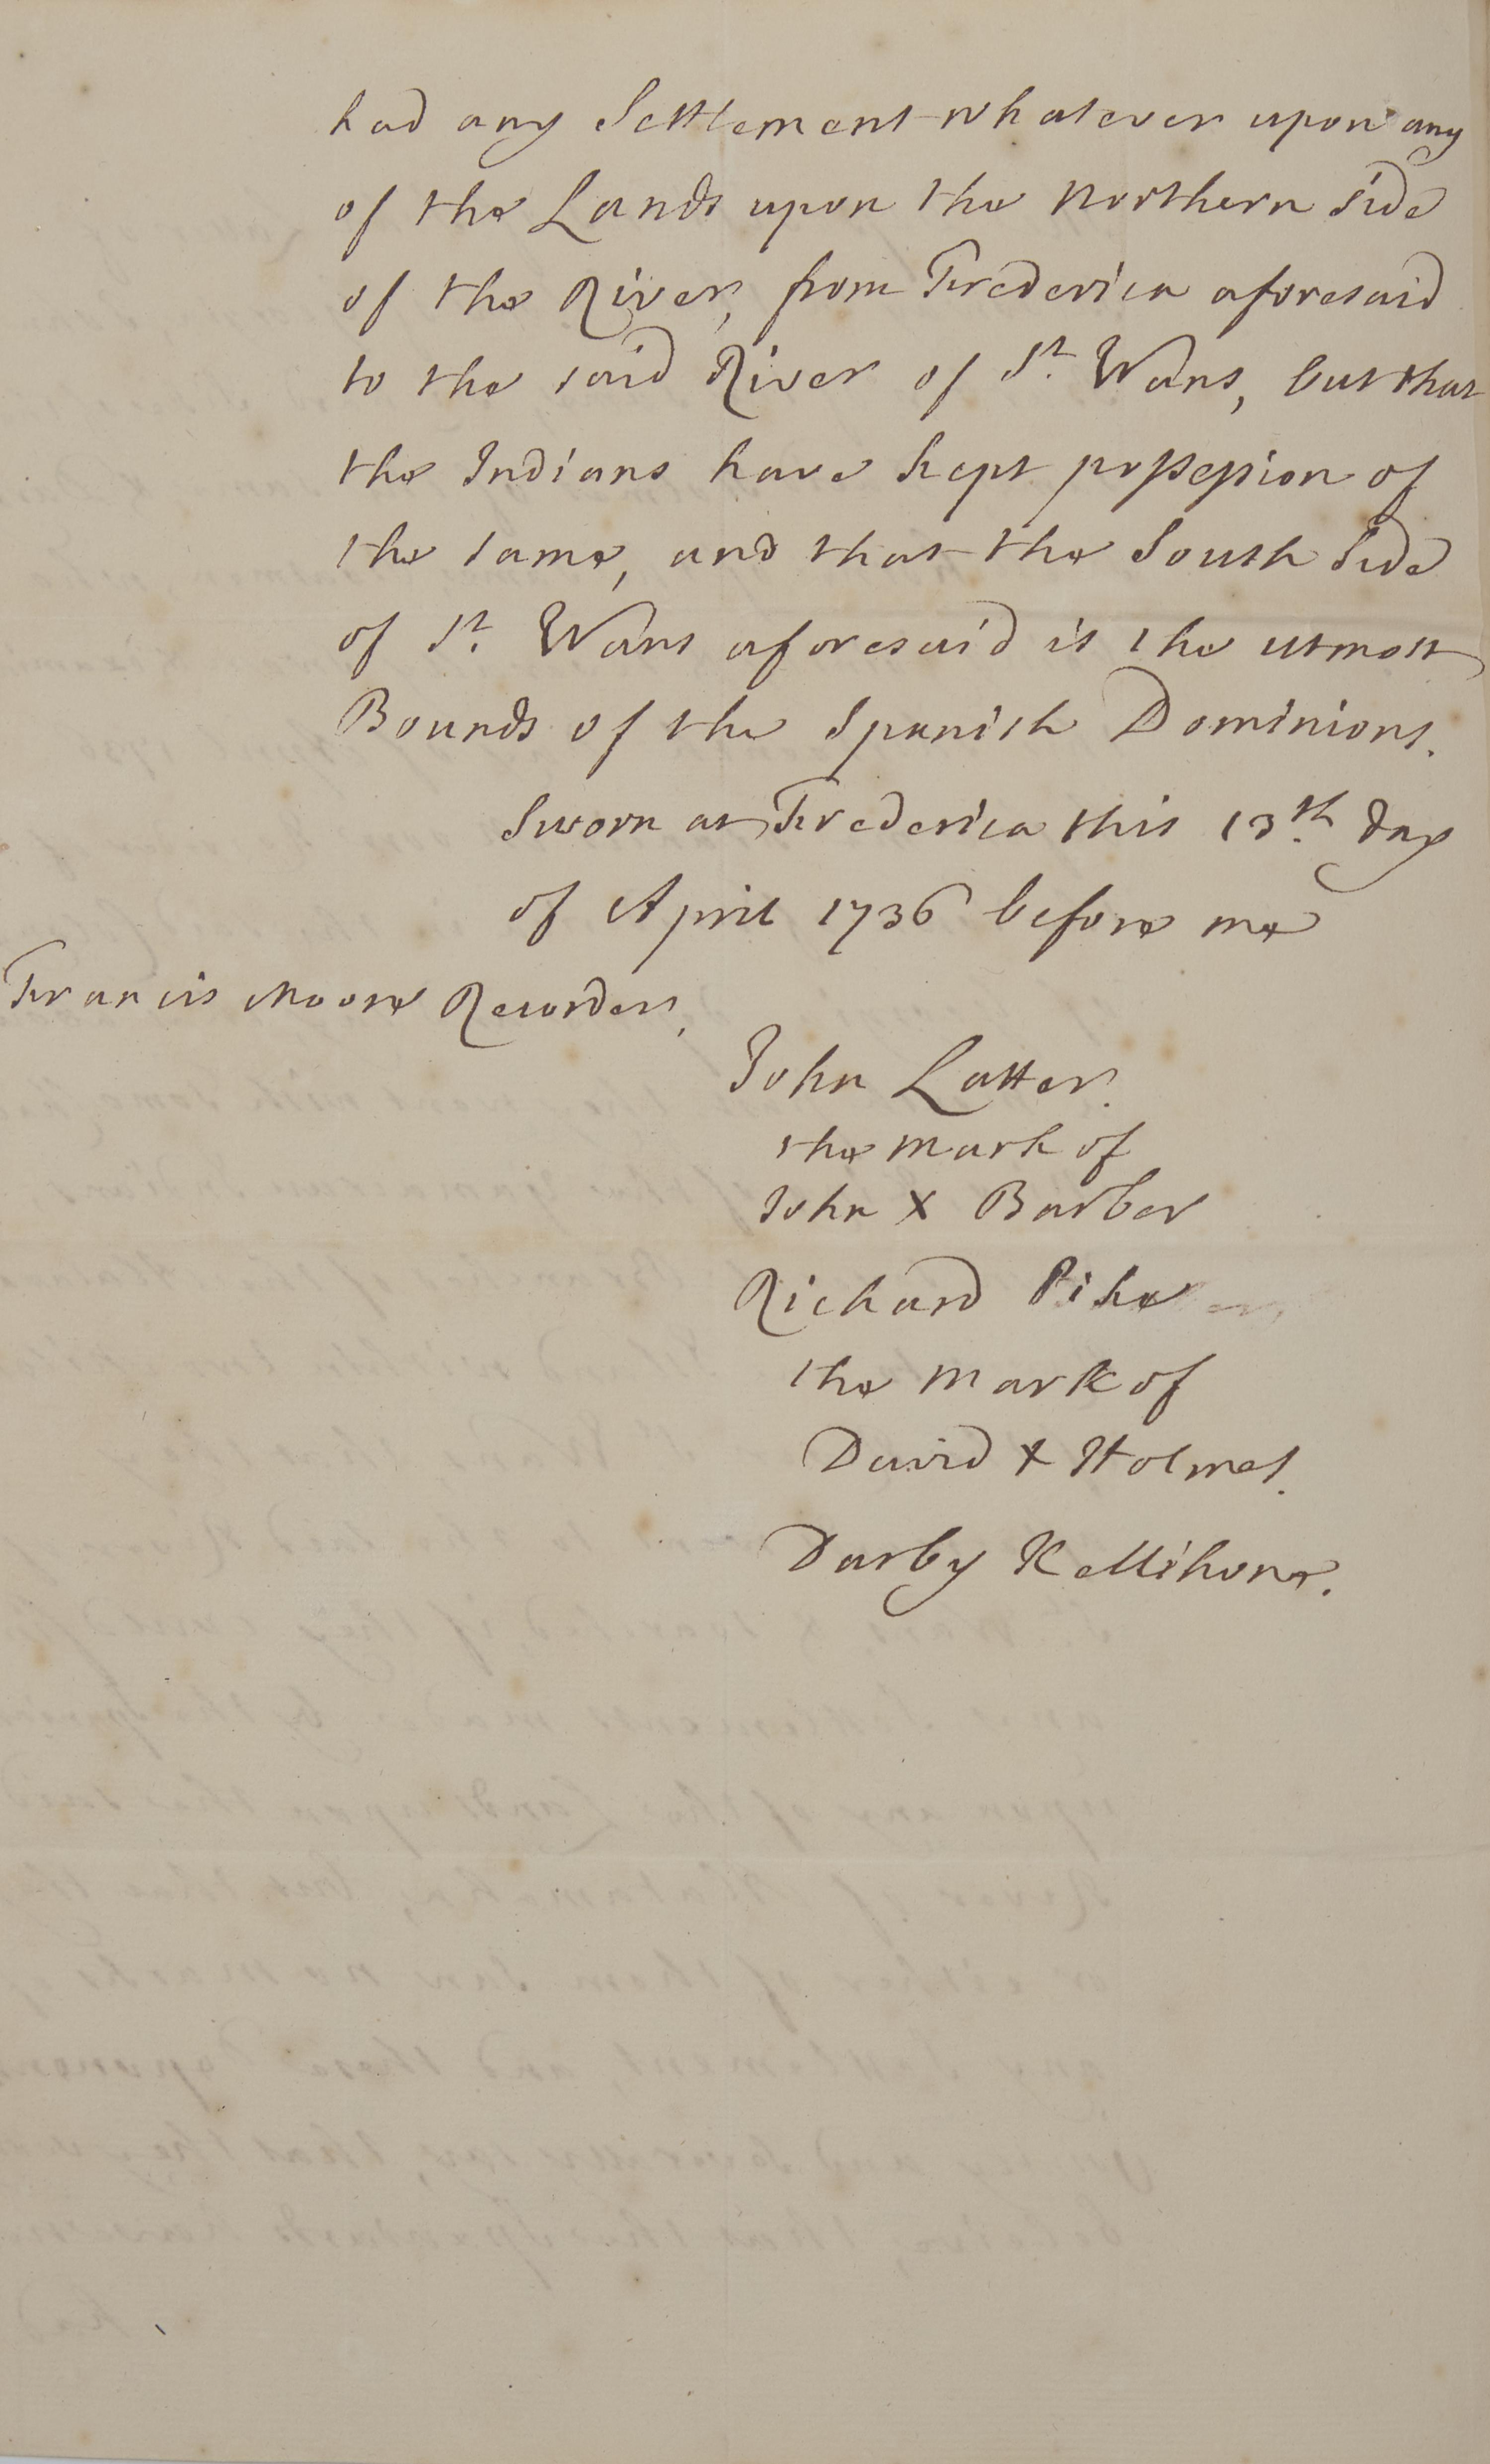 had any Settlement whatever upon any
of the Lands upon the Northern Side
of the River, from Frederica aforesaid
to the said River of St. Wans, but that
the Indians have kept possession of
the same, and that the South Side
of St. Wans aforesaid is the utmost
Bounds of the Spanish Dominions.
Sworn at Frederica this 13th. day
of April 1736 before me
Francis Moore Recorder,
John Latter.
the mark of
John X Barber
Richard Pike
the mark of
David X Holmes.
Darby Kellihone.